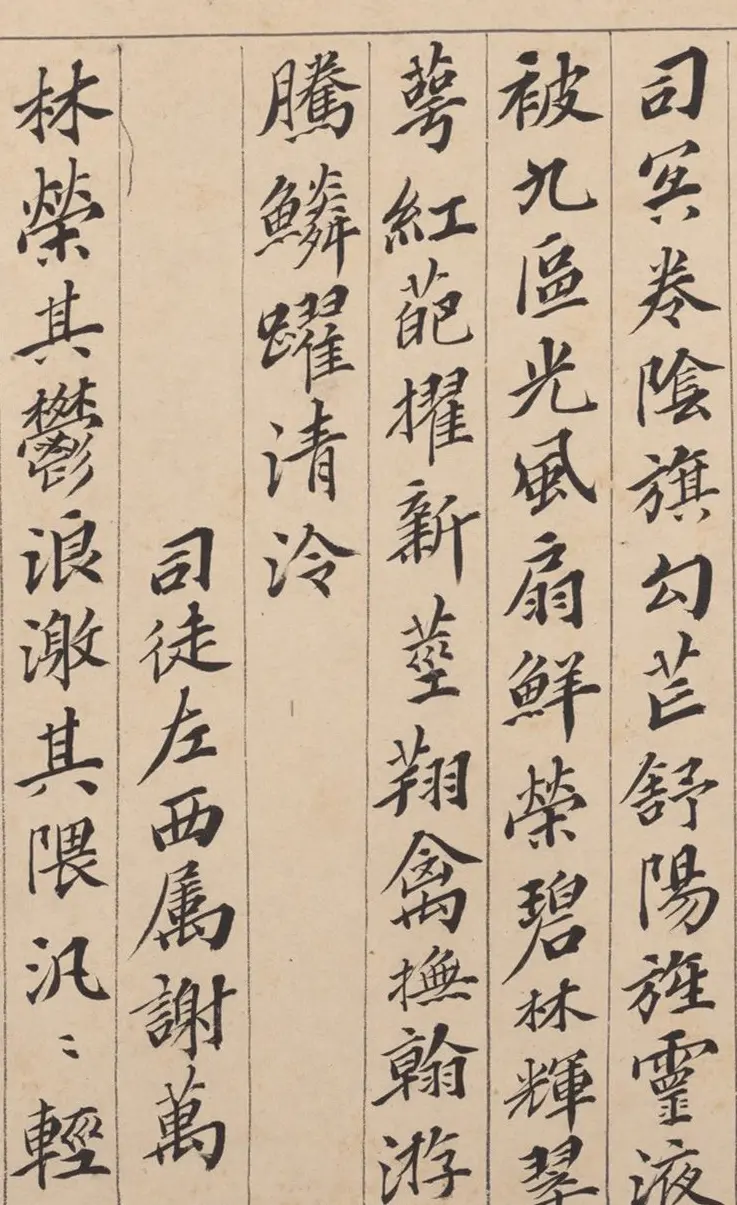 司冥卷陰旗勾芒舒陽旌靈液
被九區光風扇鮮榮碧林輝翠
萼紅葩擢新莖翔禽撫翰游
騰鱗躍清泠
司徒左西属謝萬
林榮其鬱浪激其隈汎〻輕